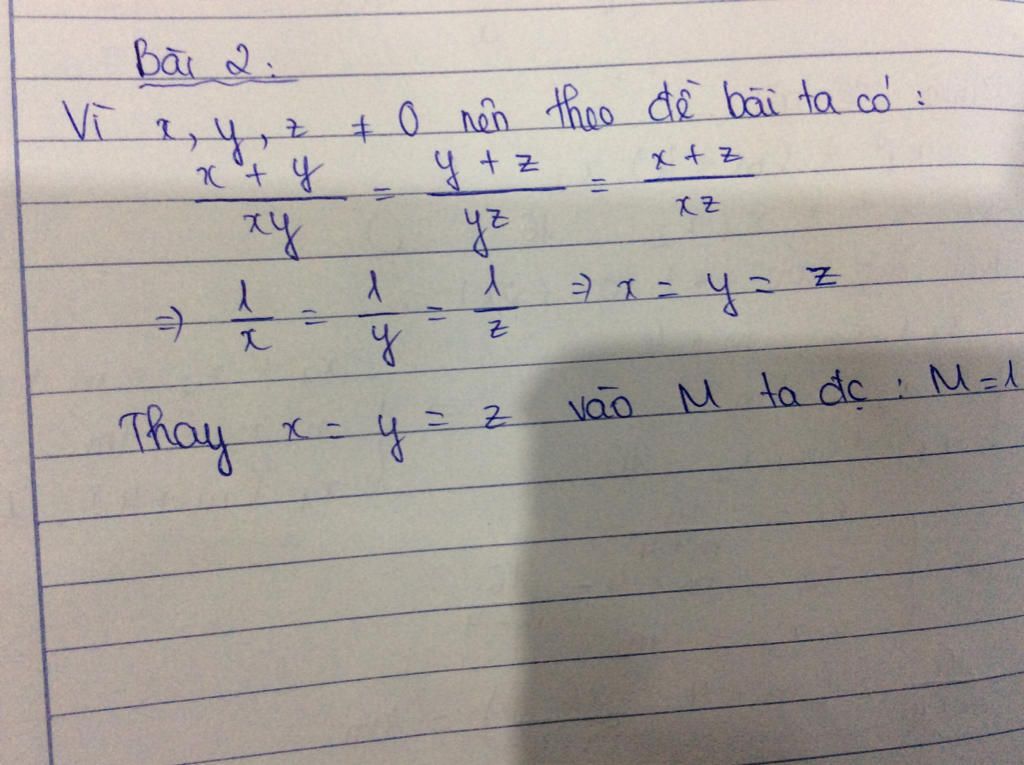 Bài 2:
Vì x, y, z ≠ 0 nên theo đề bài ta có:
x + y / xy = y + z / yz = x + z / xz
⇒ 1/x = 1/y = 1/z ⇒ x = y = z
Thay x = y = z vào M ta đc: M = 1